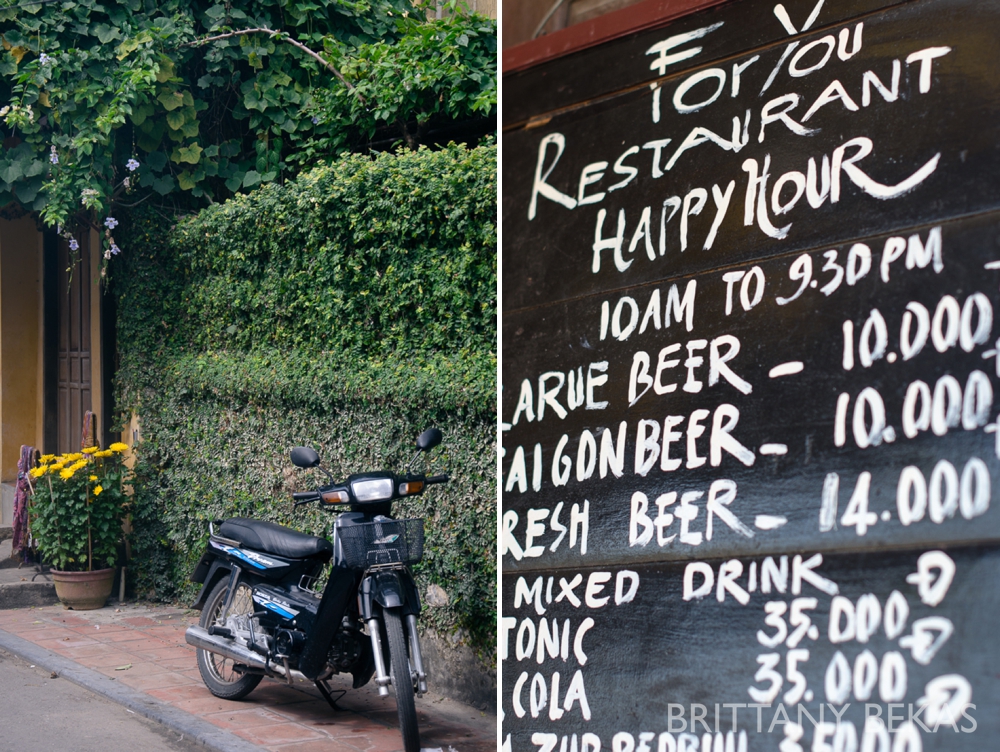 For You
RESTAURANT
HAPPY HOUR
10AM TO 9.30PM
LARUE BEER - 10.000
SAIGON BEER - 10.000
FRESH BEER - 14.000
MIXED DRINK
TONIC 35.000
COLA 35.000
BRITTANY BEKAS